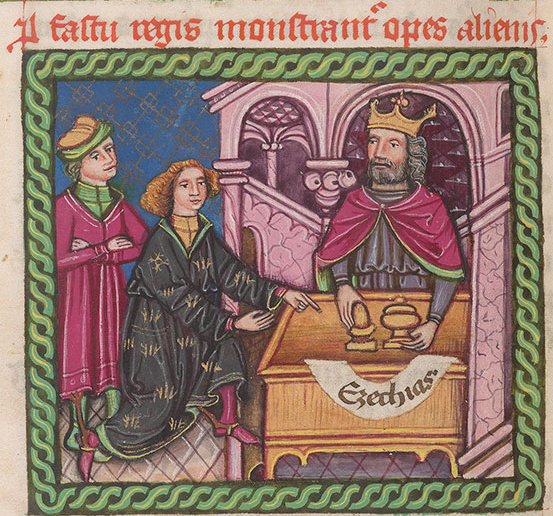 P fastu regis monstrantᷣ opes alienis.
Ezechias.